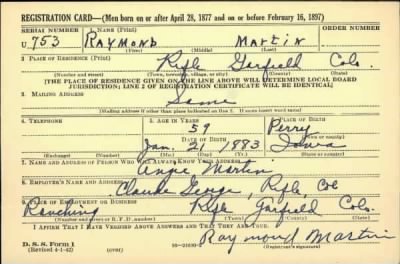 REGISTRATION CARD—(Men born on or after April 28, 1877 and on or before February 16, 1897)
SERIAL NUMBER 1. NAME (Print) ORDER NUMBER
U 753 RAYMOND MARTIN
(First) (Middle) (Last)
2. PLACE OF RESIDENCE (Print)
Rifle Garfield Colo.
(Number and street) (Town, township, village, or city) (County) (State)
[THE PLACE OF RESIDENCE GIVEN ON THE LINE ABOVE WILL DETERMINE LOCAL BOARD
JURISDICTION; LINE 2 OF REGISTRATION CERTIFICATE WILL BE IDENTICAL]
3. MAILING ADDRESS
Same
[Mailing address if other than place indicated on line 2. If same insert word same]
4. TELEPHONE 5. AGE IN YEARS 6. PLACE OF BIRTH
59 Perry
DATE OF BIRTH (Town or county)
Jan. 21 1883 Iowa
(Exchange) (Number) (Mo.) (Day) (Yr.) (State or country)
7. NAME AND ADDRESS OF PERSON WHO WILL ALWAYS KNOW YOUR ADDRESS
Angie Martin
8. EMPLOYER'S NAME AND ADDRESS
Claude George, Rifle Colo
9. PLACE OF EMPLOYMENT OR BUSINESS
Ranching Rifle Garfield Colo.
(Number and street or R. F. D. number) (Town) (County) (State)
I AFFIRM THAT I HAVE VERIFIED ABOVE ANSWERS AND THAT THEY ARE TRUE.
D. S. S. Form 1
(Revised 4-1-42) (over) Raymond Martin
(Registrant's signature)